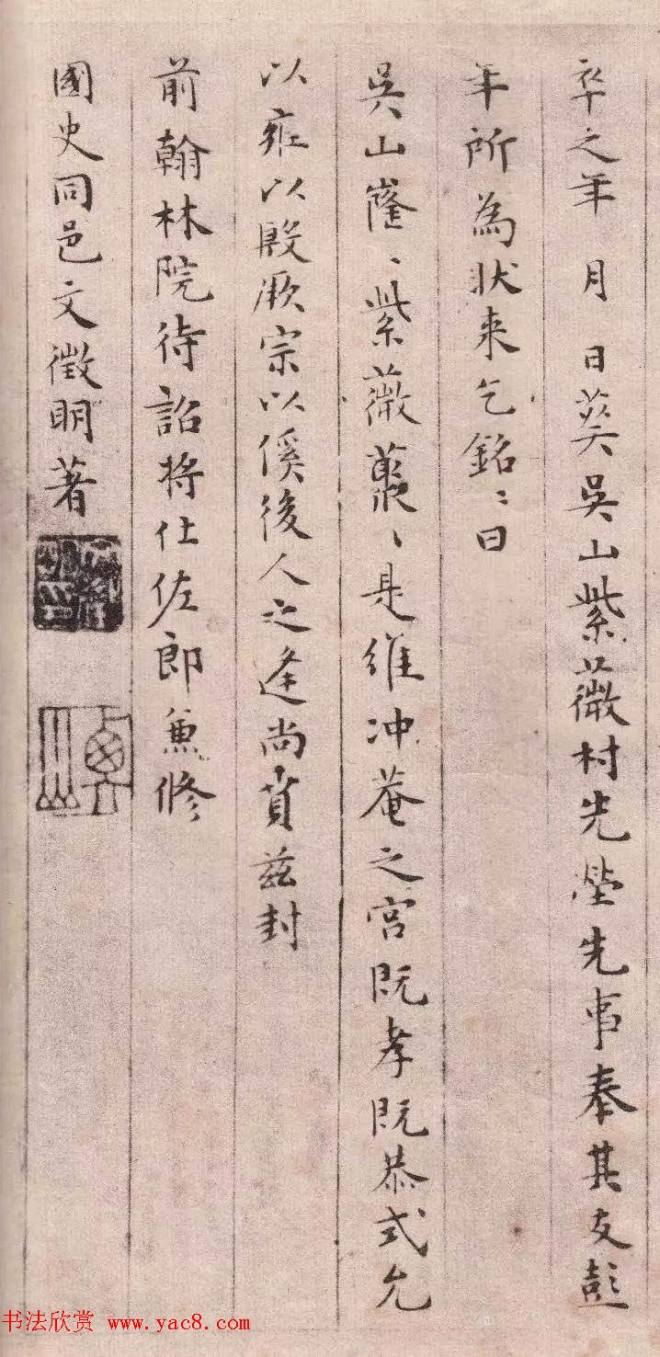 卒之年 月 日葬吳山紫薇村先塋先事奉其友彭
年所為狀来乞銘〻曰
吳山窿〻紫薇叢〻是維冲菴之宮既孝既恭式允
以雍以殿厥宗以徯後人之逢尚賁茲封
前翰林院待詔將仕佐郎兼修
國史同邑文徵明著
书法欣赏 www.yac8.com